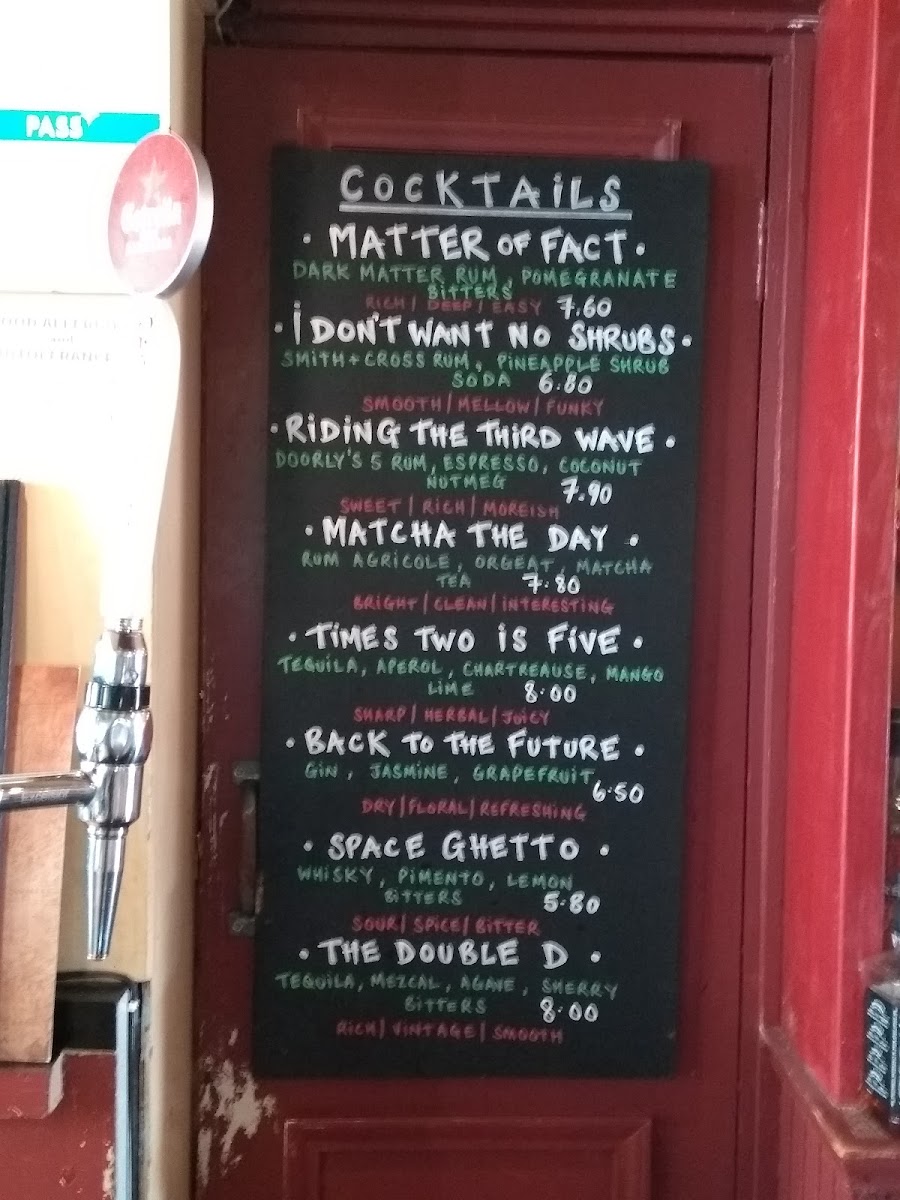 PASS
COCKTAILS
· MATTER OF FACT ·
DARK MATTER RUM, POMEGRANATE
BITTERS
RICH | DEEP | EASY 7.60
· I DON'T WANT NO SHRUBS ·
SMITH + CROSS RUM, PINEAPPLE SHRUB
SODA 6.80
SMOOTH | MELLOW | FUNKY
· RIDING THE THIRD WAVE ·
DOORLY'S 5 RUM, ESPRESSO, COCONUT
NUTMEG 7.90
SWEET | RICH | MOREISH
· MATCHA THE DAY ·
RUM AGRICOLE, ORGEAT, MATCHA
TEA 7.80
BRIGHT | CLEAN | INTERESTING
· TIMES TWO IS FIVE ·
TEQUILA, APEROL, CHARTREAUSE, MANGO
LIME 8.00
SHARP | HERBAL | JUICY
· BACK TO THE FUTURE ·
GIN, JASMINE, GRAPEFRUIT
6.50
DRY | FLORAL | REFRESHING
· SPACE GHETTO ·
WHISKY, PIMENTO, LEMON
BITTERS 5.80
SOUR | SPICE | BITTER
· THE DOUBLE D ·
TEQUILA, MEZCAL, AGAVE, SHERRY
BITTERS 8.00
RICH | VINTAGE | SMOOTH